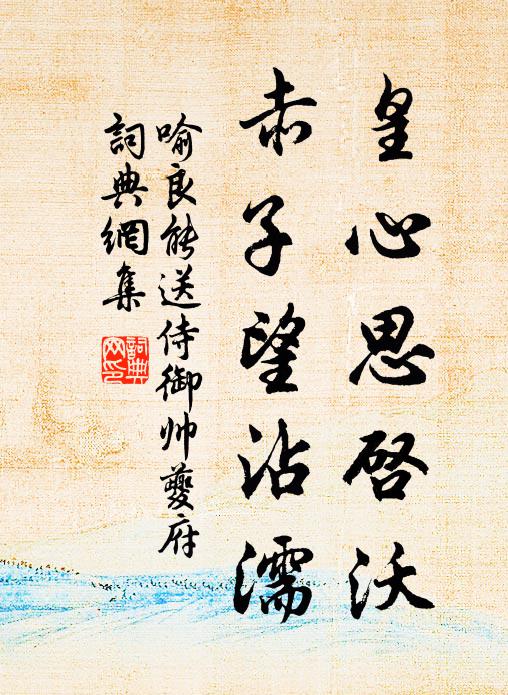 皇心思啓沃
赤子望沾濡
喻良能送侍御帅夔府
詞典網集
詞典网印